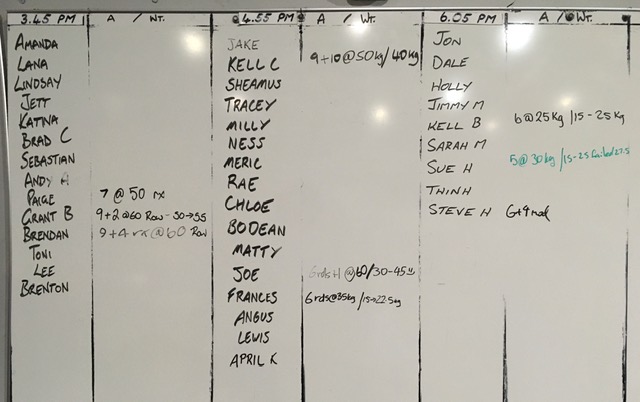 3.45 PM A / WT.
AMANDA
LANA
LINDSAY
JETT
KATINA
BRAD C
SEBASTIAN
ANDY A
PAIGE 7 @ 50 rx
GRANT B 9+2@60 Row - 50→55
BRENDAN 9+4 rx @60 Row
TONI
LEE
BRENTON
4.55 PM A / WT.
JAKE
KELL C 9+10@50kg/40kg
SHEAMUS
TRACEY
MILLY
NESS
MERIC
RAE
CHLOE
BODEAN
MATTY
JOE 6rds+1 @60/30-45
FRANCES 6rds@35kg/15→22.5kg
ANGUS
LEWIS
APRIL K
6.05 PM A / WT.
JON
DALE
HOLLY
JIMMY M
KELL B 6@25Kg/15-25Kg
SARAH M
SUE H 5@30kg/15-25 failed 27.5
THINH
STEVE H 6+9 mod